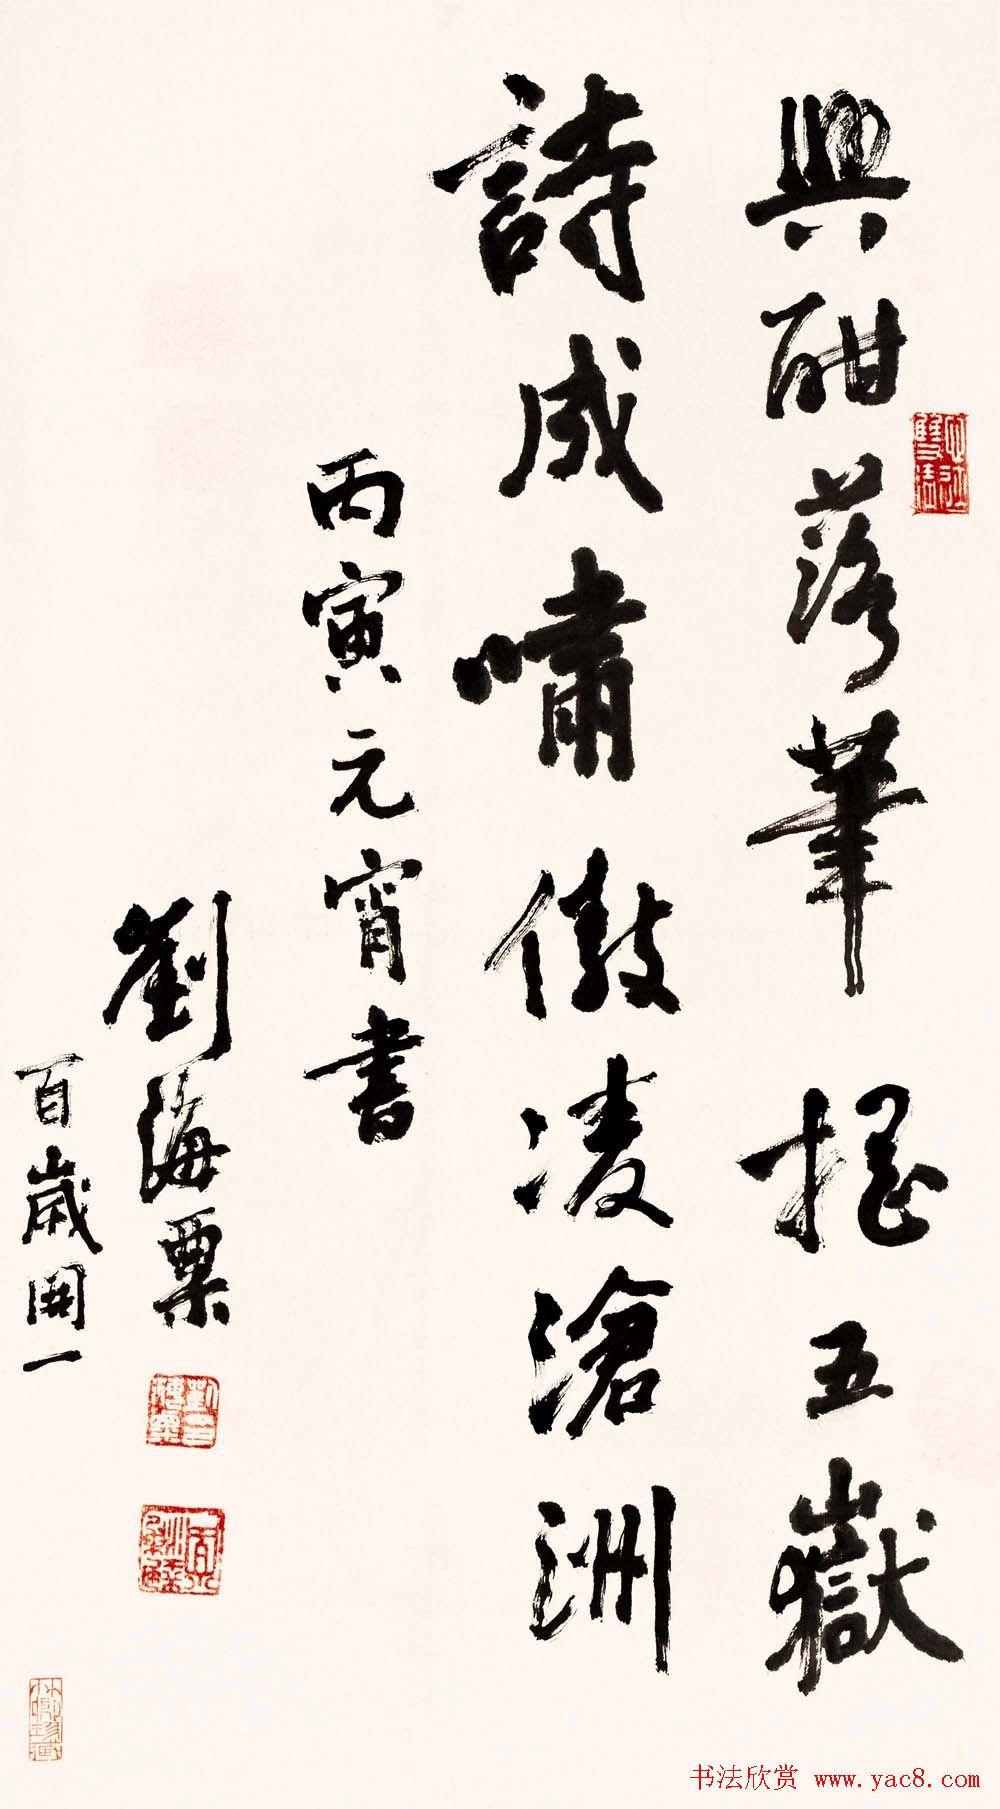 興酣落筆搖五嶽
詩成嘯傲凌滄洲
丙寅元宵書
劉海粟
百歲開一
书法欣赏 www.yac8.com